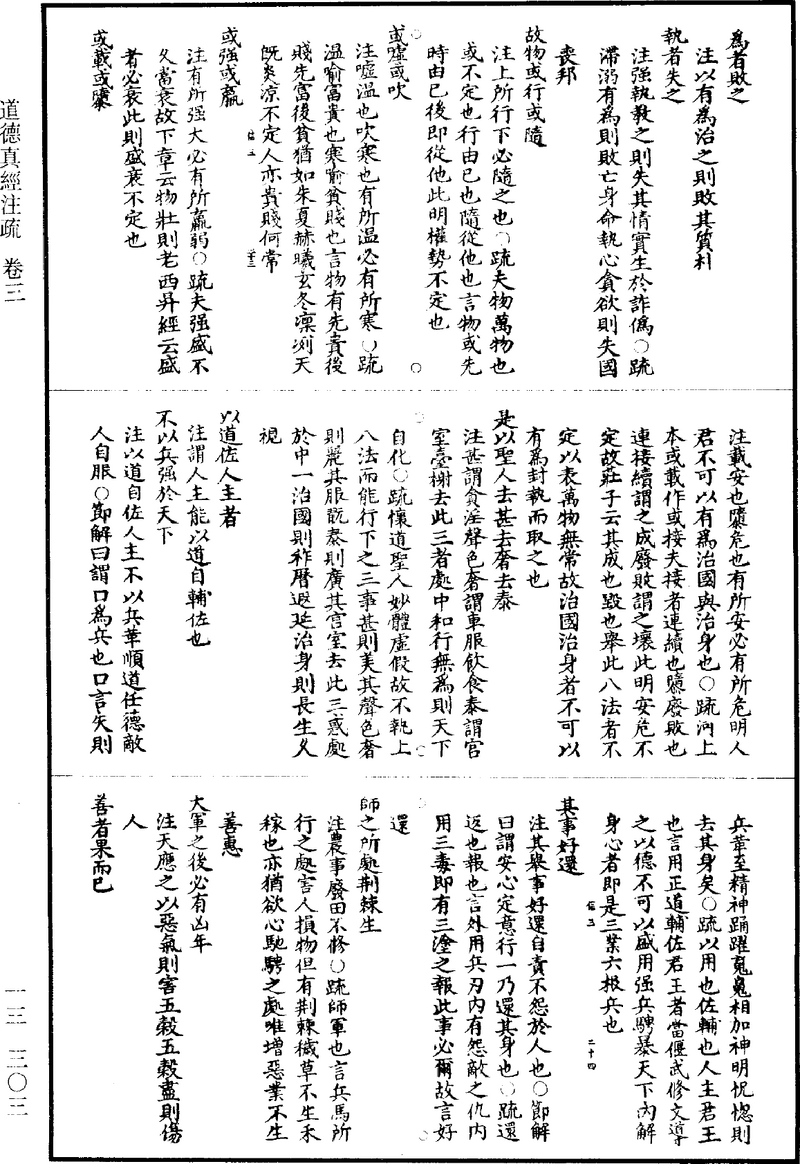 道德真經注疏　卷三
一三　三〇三
為者敗之
注以有為治之則敗其質朴
執者失之
注強執教之則失其情實生於詐偽○疏
滯溺有為則敗亡身命執心貪欲則失國
喪邦
故物或行或隨
注上所行下必隨之也○疏夫物萬物也
或不定也行由已也隨從他也言物或先
時由已後即從他此明權勢不定也
或噓或吹
注噓溫也吹寒也有所温必有所寒○疏
温喻富貴也寒喻貧賤也言物有先貴後
賤先富後貧猶如朱夏赫曦玄冬凜冽天
既炎涼不定人亦貴賤何常
或强或羸
注有所强大必有所羸弱○疏夫强盛不
久當衰故下章云物壯則老西昇經云盛
者必衰此則盛衰不定也
或載或隳
注載安也隳危也有所安必有所危明人
君不可以有為治國與治身也○疏河上
本或載作或接夫接者連續也隳廢敗也
連接續謂之成廢敗謂之壞此明安危不
定故莊子云其成也毀也舉此八法者不
定以表萬物無常故治國治身者不可以
有為封執而取之也
是以聖人去甚去奢去泰
注甚謂貪淫聲色奢謂車服飲食泰謂宮
室臺榭去此三者處中和行無為則天下
自化○疏懷道聖人妙體虛假故不執上
八法而能行下之三事甚則美其聲色奢
則麗其服翫泰則廣其宮室去此三惑處
於中一治國則祚曆遐延治身則長生久
視
以道佐人主者
注謂人主能以道自輔佐也
不以兵强於天下
注以道自佐人主不以兵革順道任德敵
人自服○節解曰謂口為兵也口言矢則
兵革至精神踊躍䰟魄相加神明怳惚則
去其身矣○疏以用也佐輔也人主君王
也言用正道輔佐君王者當偃武修文導
之以德不可以盛用强兵騁暴天下內解
身心者即是三業六根兵也
其事好還
注其舉事好還自責不怨於人也○節解
曰謂安心定意行一乃還其身也○疏還
返也報也言外用兵刃內有怨敵之仇內
用三毒即有三塗之報此事必爾故言好
還
師之所處荆棘生
注農事廢田不修○疏師軍也言兵馬所
行之處害人損物但有荆棘穢草不生禾
稼也亦猶欲心馳騁之處唯增惡業不生
善惠
大軍之後必有凶年
注天應之以惡氣則害五穀五穀盡則傷
人
善者果而已